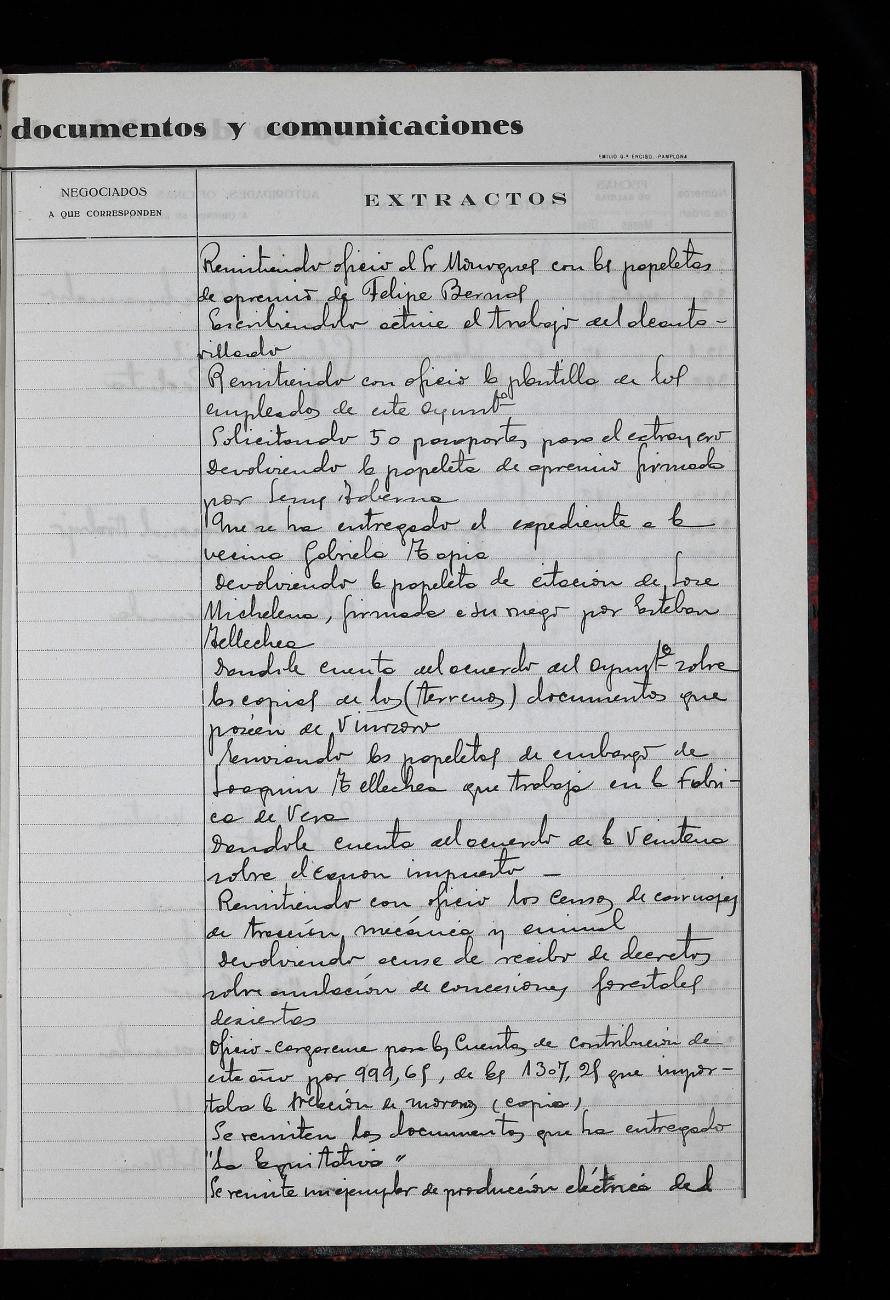 documentos y comunicaciones
EMILIO G.ª ENCISO.-PAMPLONA
NEGOCIADOS
A QUE CORRESPONDEN
EXTRACTOS
Remitiendo oficio al Sr con las papeletas
de apremio de Felipe Bernal
Escribiendole active el trabajo del
Remitiendo con oficio la plantilla de los
empleados de este Ayuntº
Solicitando 50 pasaportes para el extranjero
Devolviendo la papeleta de apremio firmada
por
Que se ha entregado el expediente a la
vecina Gabriela Tapia
Devolviendo la papeleta de citación de Jose
Michelena, firmada a su ruego por Esteban
Tellechea
Dandole cuenta del acuerdo del Ayuntº sobre
las copias de los (terrenos) documentos que
poseen de
Enviando las papeletas de embargo de
Joaquin Tellechea que trabaja en la Fabri-
ca de Vera
Dandole cuenta del acuerdo de la Veintena
sobre el canon impuesto
Remitiendo con oficio los censos de carruajes
de tracción mecánica y animal
Devolviendo acuse de recibo de decretos
sobre anulación de concesiones forestales
desiertas
Oficio-cargareme para las Cuentas de contribución de
este año por 999,65, de las 1307,25 que impor-
taba la relación de morosos (copia)
Se remiten los documentos que ha entregado
"La Equitativa"
Se remite un ejemplar de producción eléctrica del